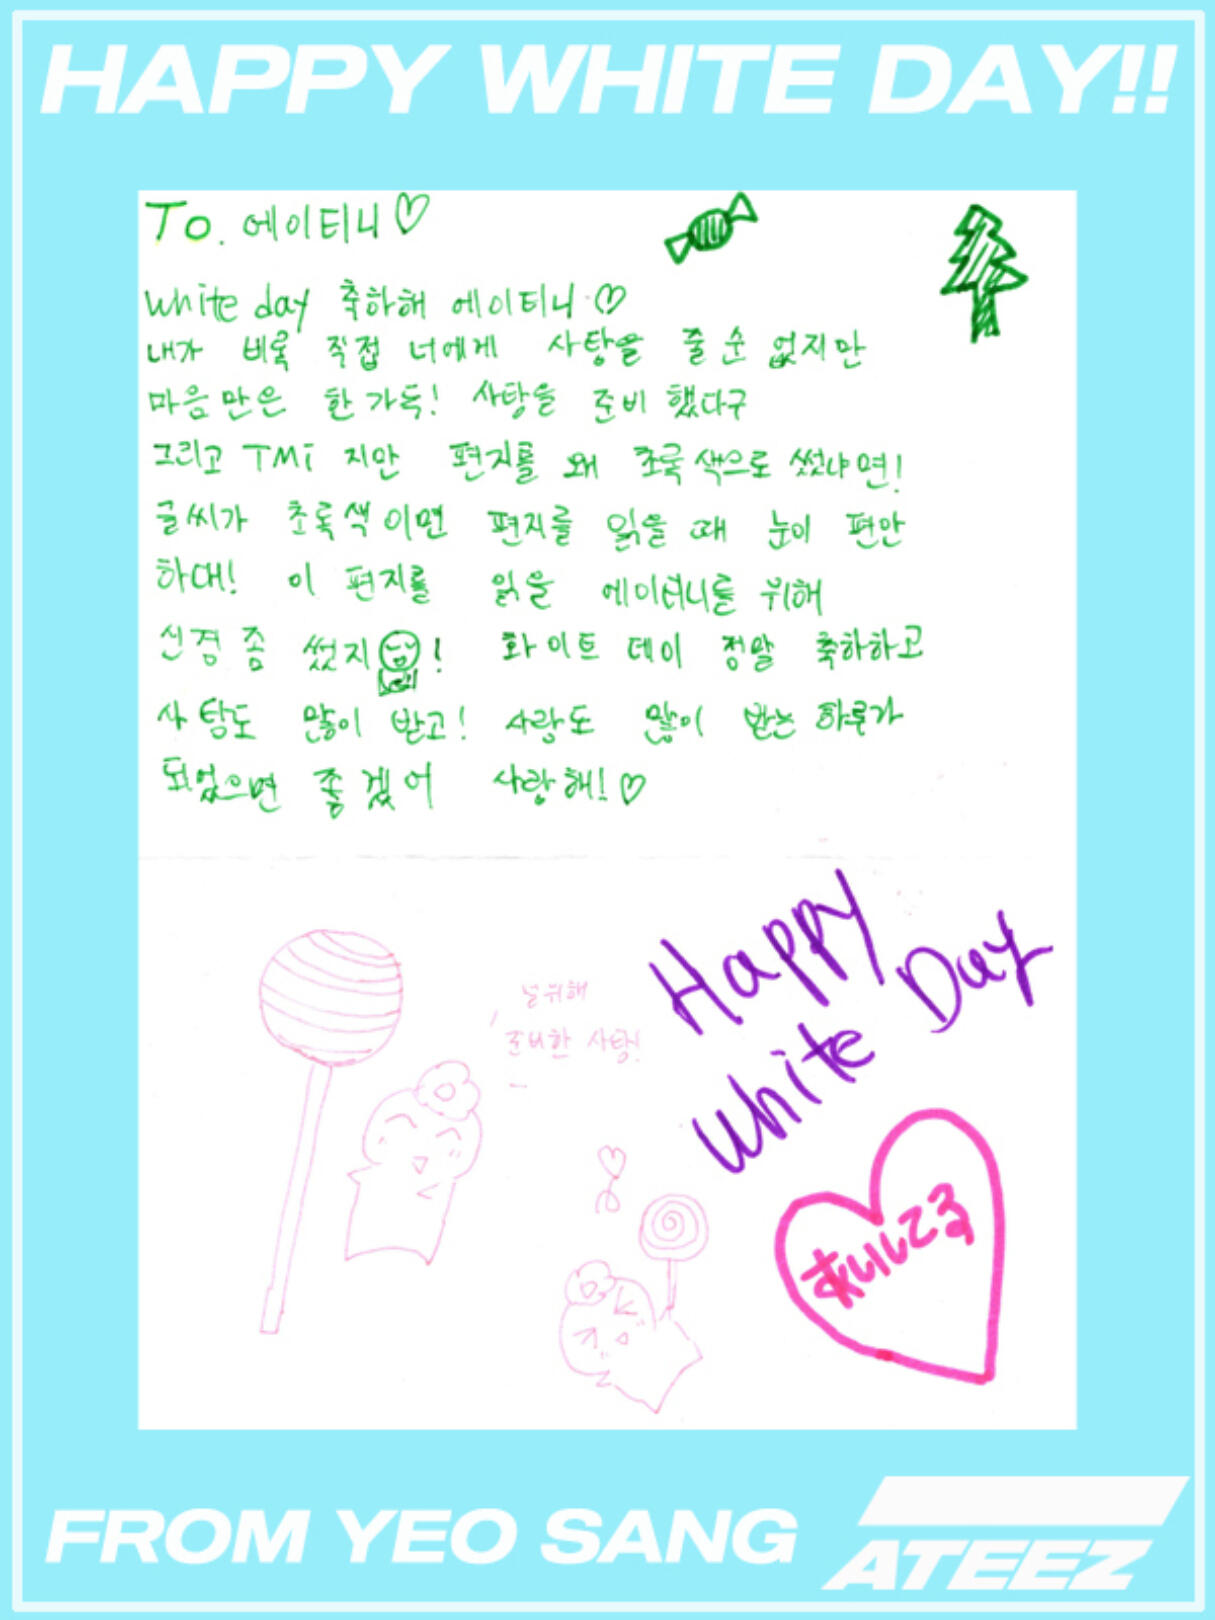 HAPPY WHITE DAY!!
To. 에이티니♡
white day 축하해 에이티니♡
내가 비록 직접 너에게 사탕을 줄 순 없지만
마음만은 한가득! 사탕을 준비했다구
그리고 TMi 지만 편지를 왜 초록색으로 썼냐면!
글씨가 초록색이면 편지를 읽을 때 눈이 편안
하대! 이 편지를 읽을 에이티니를 위해
신경 좀 썼지! 화이트 데이 정말 축하하고
사탕도 많이 받고! 사랑도 많이 받는 하루가
되었으면 좋겠어 사랑해!♡
널위해
준비한 사탕!
Happy
White Day
あいしてる
FROM YEO SANG
ATEEZ